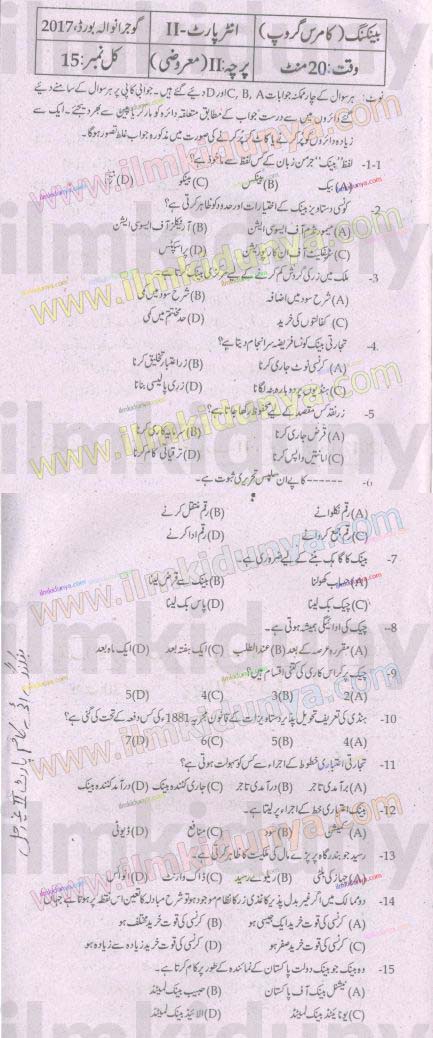 بینکنگ (کامرس گروپ) انٹر پارٹ-II گوجرانوالہ بورڈ، 2017
وقت: 20 منٹ پرچہ: II (معروضی) کل نمبر: 15
نوٹ: ہر سوال کے چار ممکنہ جوابات A، B، C اور D دیئے گئے ہیں۔ جوابی کاپی پر ہر سوال کے سامنے دیئے
گئے دائروں میں سے درست جواب کے مطابق متعلقہ دائرہ کو مارکر یا پین سے بھر دیجئے۔ ایک سے
زیادہ دائروں کو پُر کرنے یا کاٹ کر پُر کرنے کی صورت میں مذکورہ جواب غلط تصور ہوگا۔
1-1- لفظ "بینک" جرمن زبان کے کس لفظ سے ماخوذ ہے؟
(A) بیک (B) بینکس (C) بینکو (D)
2- کونسی دستاویز بینک کے اختیارات اور حدود کو ظاہر کرتی ہے؟
(A) میمورنڈم آف ایسوسی ایشن (B) آرٹیکلز آف ایسوسی ایشن
(C) سرٹیفکیٹ آف ان کارپوریشن (D) پراسپکٹس
3- ملک میں زر کی گردش کم کرنے کے لیے مرکزی بینک کرتا ہے۔
(A) شرح سود میں اضافہ (B) شرح سود میں کمی
(C) کفالتوں کی خرید (D) حد مختتم میں کمی
4- تجارتی بینک کونسا فریضہ سرانجام دیتا ہے؟
(A) کرنسی نوٹ جاری کرنا (B) زر اعتبار تخلیق کرنا
(C) ہنڈیوں پر دوبارہ بٹہ لگانا (D) زری پالیسی بنانا
5- زر نقد کس مقصد کے لیے محفوظ رکھا جاتا ہے؟
(A) قرض جاری کرنا (B) سرمایہ کاری کرنا
(C) امانتیں واپس کرنا (D) ترقیاتی کام کرنا
------ کا پے ان سلپس تحریری ثبوت ہے۔
(A) رقم نکلوانے (B) رقم منتقل کرنے
(C) رقم جمع کروانے (D) رقم ادا کرنے
7- بینک کا گاہک بننے کے لیے ضروری ہے۔
(A) حساب کھولنا (B) بینک سے قرض لینا
(C) چیک بک لینا (D) پاس بک لینا
8- چیک کی ادائیگی ہمیشہ ہوتی ہے۔
(A) مقررہ عرصہ کے بعد (B) عند الطلب (C) ایک ہفتہ بعد (D) ایک ماہ بعد
9- چیک پر کراس کاری کی کتنی اقسام ہیں؟
(A) 2 (B) 3 (C) 4 (D) 5
10- ہنڈی کی تعریف تحویل پذیر دستاویزات کے قانون مجریہ 1881ء کی کس دفعہ کے تحت کی گئی ہے؟
(A) 4 (B) 5 (C) 6 (D) 7
11- تجارتی اعتباری خطوط کے اجراء سے کس کو سہولت ہوتی ہے؟
(A) برآمدی تاجر (B) درآمدی تاجر (C) جاری کنندہ بینک (D) درآمد کنندہ بینک
12- بینک اعتباری خط کے اجراء پر لیتا ہے۔
(A) کمیشن (B) سود (C) منافع (D) ڈیوٹی
13- رسید جو بندرگاہ پر پڑے مال کی ملکیت کا ظاہر کرتی ہے۔
(A) جہاز کی بلٹی (B) ریلوے رسید (C) ڈاک وارنٹ (D) انوائس
14- دو ممالک میں اگر غیر بدل پذیر کاغذی زر کا نظام موجود ہو تو شرح مبادلہ کا تعین اس نقطہ پر ہوتا ہے جہاں
(A) کرنسی کی قوت خرید ایک جیسی ہو (B) کرنسی کی قوت خرید مختلف ہو
(C) کرنسی کی قوت خرید صفر ہو (D) کرنسی کی قوت خرید زیادہ سے زیادہ ہو
15- وہ بینک جو بینک دولت پاکستان کے نمائندہ کے طور پر کام کرتا ہے۔
(A) نیشنل بینک آف پاکستان (B) حبیب بینک لمیٹڈ
(C) یونائیٹڈ بینک لمیٹڈ (D) الائیڈ بینک لمیٹڈ
www.ilmkidunya.com
ilmkidunya